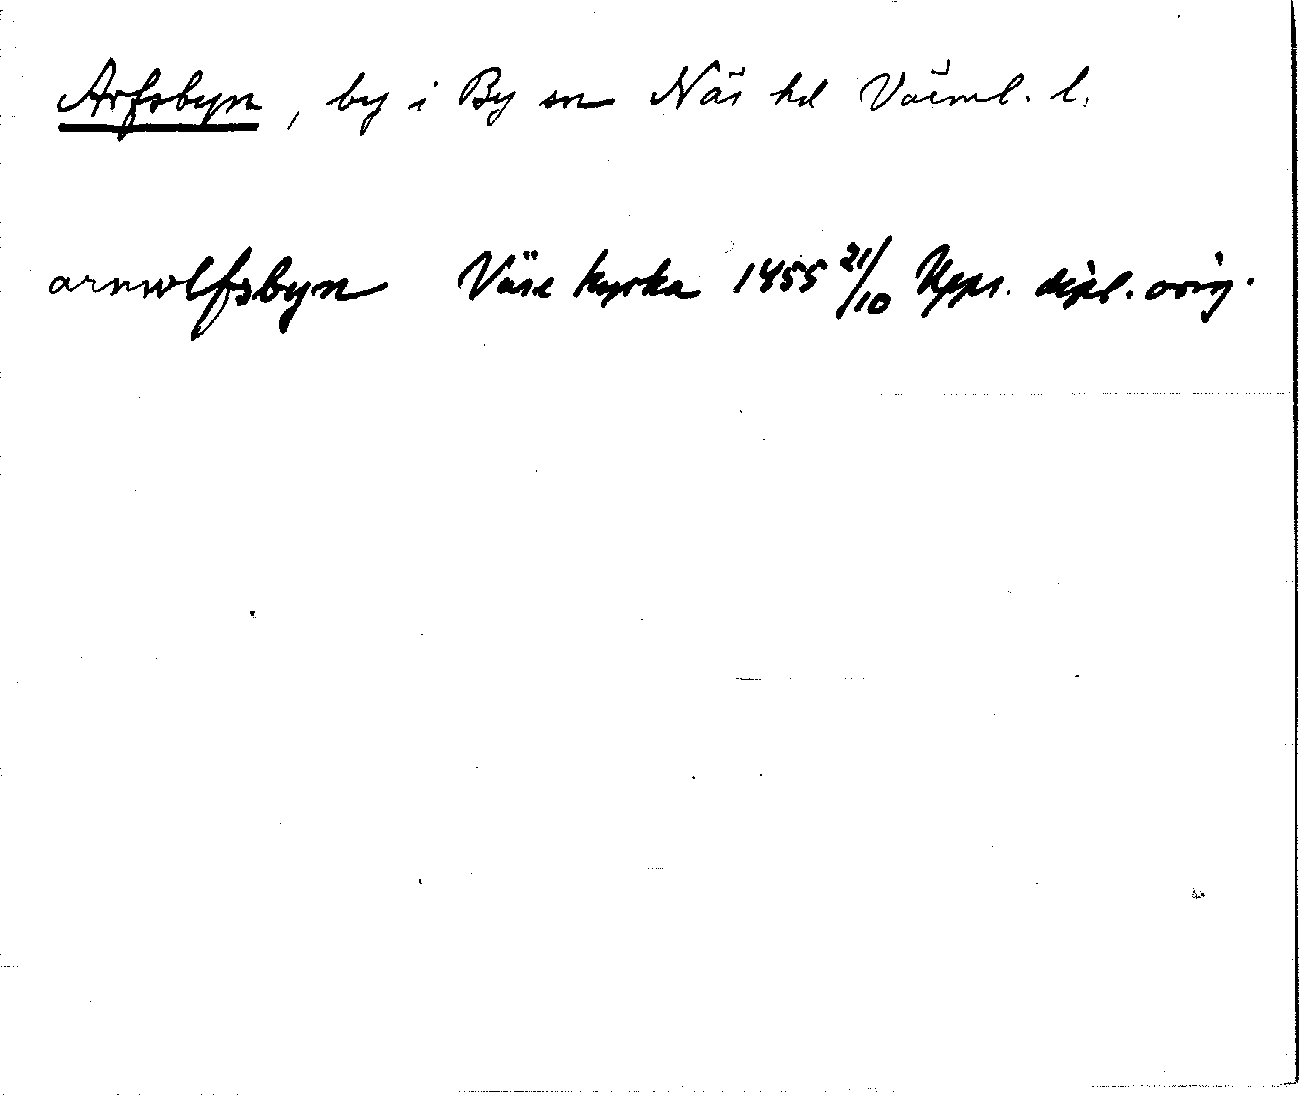 Arfsbyn, by i By sn Näs hd Värml. l.
arnwlfsbyn Väse kyrka 1455 21/10 Upps. dipl. orig.